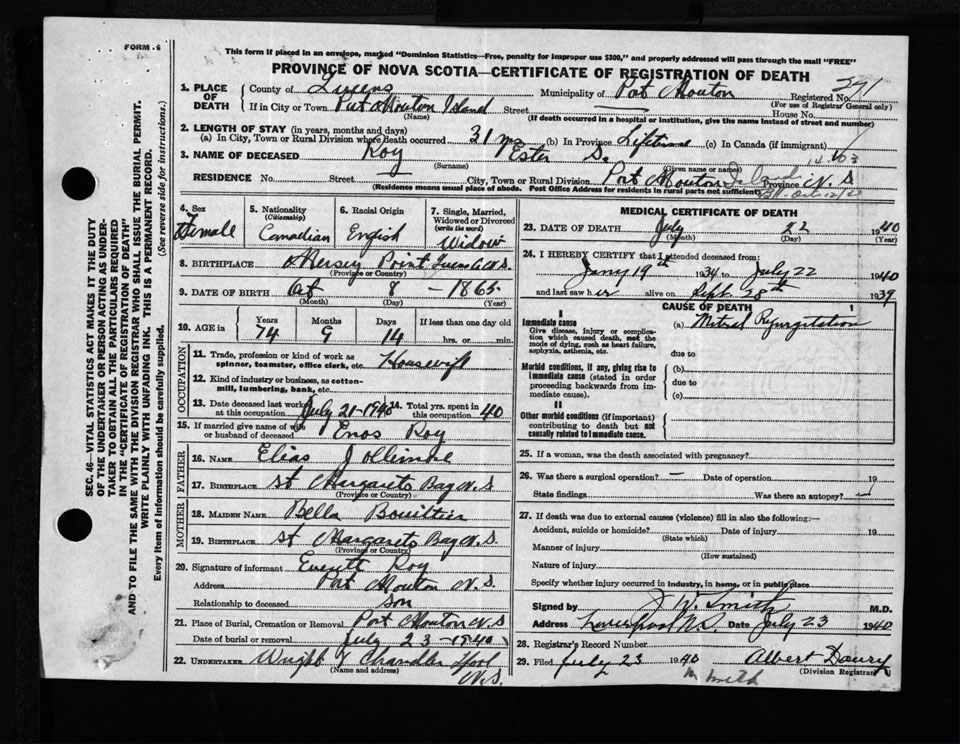 FORM - 6
This form if placed in an envelope, marked "Dominion Statistics—Free, penalty for improper use $300," and properly addressed will pass through the mail "FREE"
PROVINCE OF NOVA SCOTIA—CERTIFICATE OF REGISTRATION OF DEATH
1. PLACE OF DEATH
County of Queens Municipality of Port Mouton Registered No. 271
(For use of Registrar General only)
If in City or Town Port Mouton Island Street House No.
(Name) (If death occurred in a hospital or institution, give the name instead of street and number)
2. LENGTH OF STAY (in years, months and days)
(a) In City, Town or Rural Division where death occurred 31 (b) In Province Lifetime (c) In Canada (if immigrant)
3. NAME OF DECEASED Roy Ester S.
(Surname) (Given name or names)
RESIDENCE No. Street City, Town or Rural Division Port Mouton Island Province N.S
(Residence means usual place of abode. Post Office Address for residents in rural parts not sufficient)
4. Sex Female
5. Nationality (Citizenship) Canadian
6. Racial Origin English
7. Single, Married, Widowed or Divorced (write the word) Widow
8. BIRTHPLACE Mersey Point Queens Co N.S.
(Province or Country)
9. DATE OF BIRTH Oct 8 - 1865
(Month) (Day) (Year)
10. AGE in Years 74 Months 9 Days 14 If less than one day old hrs. or min.
OCCUPATION
11. Trade, profession or kind of work as spinner, teamster, office clerk, etc. Housewife
12. Kind of industry or business, as cotton-mill, lumbering, bank, etc.
13. Date deceased last worked at this occupation July 21-1940 14. Total yrs. spent in this occupation 40
15. If married give name of wife or husband of deceased Enos Roy
FATHER
16. NAME Elias Jollimore
17. BIRTHPLACE St Margarets Bay N.S
(Province or Country)
MOTHER
18. MAIDEN NAME Bella Bouiltier
19. BIRTHPLACE St Margarets Bay N.S
(Province or Country)
20. Signature of informant Everett Roy
Address Port Mouton N.S.
Relationship to deceased son
21. Place of Burial, Cremation or Removal Port Mouton N.S
Date of burial or removal July 23-1940
22. UNDERTAKER Chandler N.S.
(Name and address)
MEDICAL CERTIFICATE OF DEATH
23. DATE OF DEATH July 22 1940
(Month) (Day) (Year)
24. I HEREBY CERTIFY that I attended deceased from:
Jany 19th 1934 to July 22 1940
and last saw her alive on Sept. 28th 1939
CAUSE OF DEATH
I
Immediate cause
Give disease, injury or complication which caused death, not the mode of dying, such as heart failure, asphyxia, asthenia, etc.
(a) Mitral Regurgitation
due to
Morbid conditions, if any, giving rise to immediate cause (stated in order proceeding backwards from immediate cause).
(b)
due to
(c)
II
Other morbid conditions (if important) contributing to death but not causally related to immediate cause.
25. If a woman, was the death associated with pregnancy?
26. Was there a surgical operation? — Date of operation 19
State findings Was there an autopsy?
27. If death was due to external causes (violence) fill in also the following:—
Accident, suicide or homicide? Date of injury 19
(State which)
Manner of injury
(How sustained)
Nature of injury
Specify whether injury occurred in industry, in home, or in public place
Signed by J W. Smith M.D.
Address Liverpool N.S. Date July 23 1940
28. Registrar's Record Number
29. Filed July 23 1940 Albert Daury
(Division Registrar)
M Smith
SEC. 46—VITAL STATISTICS ACT MAKES IT THE DUTY
OF THE UNDERTAKER OR PERSON ACTING AS UNDER-
TAKER TO OBTAIN ALL THE PARTICULARS REQUIRED
IN THE "CERTIFICATE OF REGISTRATION OF DEATH"
AND TO FILE THE SAME WITH THE DIVISION REGISTRAR WHO SHALL ISSUE THE BURIAL PERMIT.
WRITE PLAINLY WITH UNFADING INK. THIS IS A PERMANENT RECORD.
Every item of information should be carefully supplied. (See reverse side for instructions.)